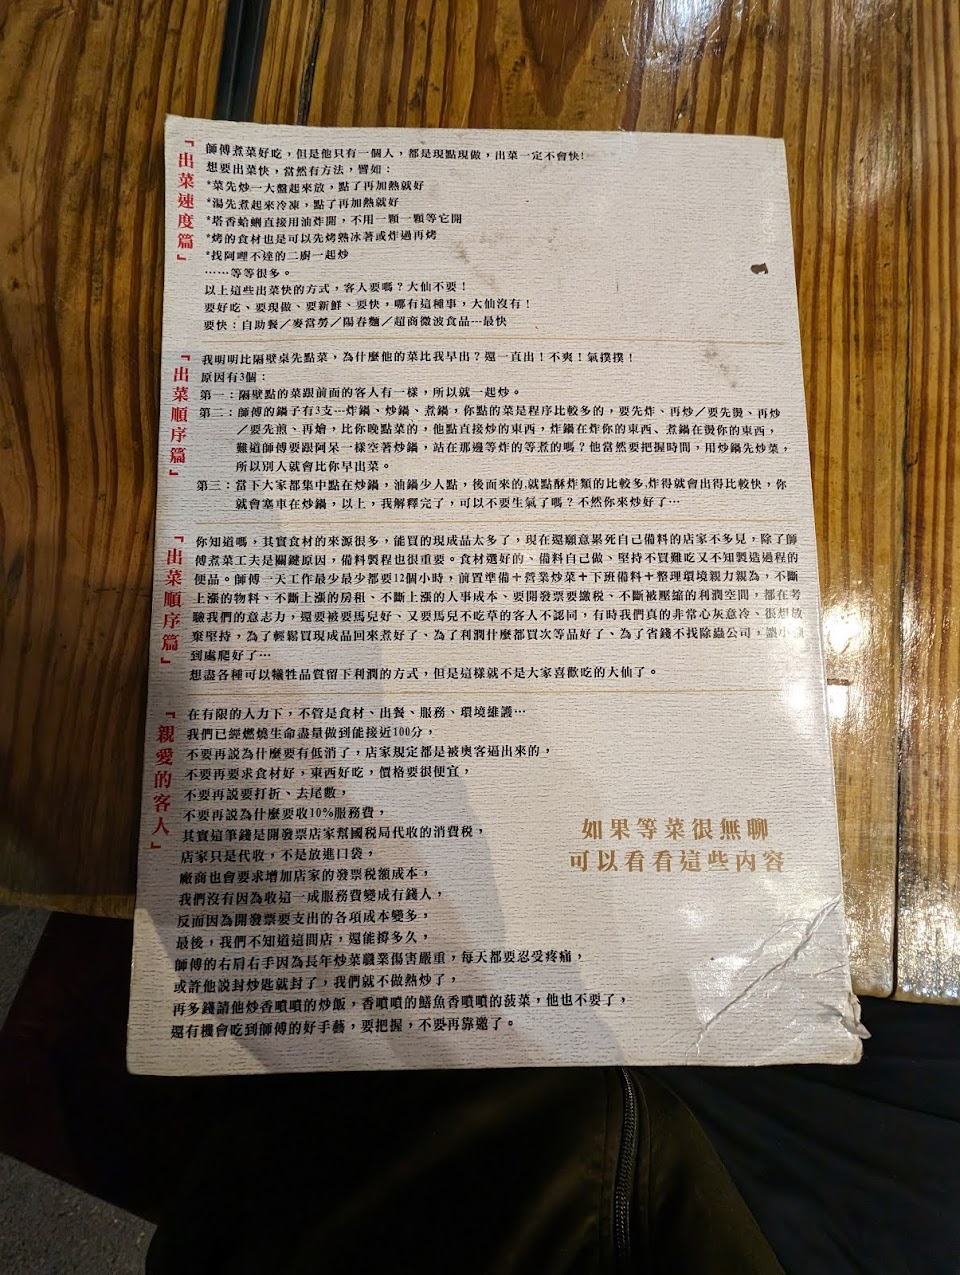 「出菜速度篇」
師傅煮菜好吃，但是他只有一個人，都是現點現做，出菜一定不會快!
想要出菜快，當然有方法，譬如：
*菜先炒一大盤起來放，點了再加熱就好
*湯先煮起來冷凍，點了再加熱就好
*塔香蛤蜊直接用油炸開，不用一顆一顆等它開
*烤的食材也是可以先烤熟冰著或炸過再烤
*找阿哩不達的二廚一起炒
……等等很多。
以上這些出菜快的方式，客人要嗎？大仙不要！
要好吃、要現做、要新鮮、要快，哪有這種事，大仙沒有！
要快：自助餐／麥當勞／陽春麵／超商微波食品…最快
「出菜順序篇」
我明明比隔壁桌先點菜，為什麼他的菜比我早出？還一直出！不爽！氣撲撲！
原因有3個：
第一：隔壁點的菜跟前面的客人有一樣，所以就一起炒。
第二：師傅的鍋子有3支---炸鍋、炒鍋、煮鍋，你點的菜是程序比較多的，要先炸、再炒／要先燙、再炒
／要先煎、再燴，比你晚點菜的，他點直接炒的東西，炸鍋在炸你的東西、煮鍋在燙你的東西，
難道師傅要跟阿呆一樣空著炒鍋，站在那邊等炸的等煮的嗎？他當然要把握時間，用炒鍋先炒菜，
所以別人就會比你早出菜。
第三：當下大家都集中點在炒鍋，油鍋少人點，後面來的,就點酥炸類的比較多,炸得就會出得比較快，你
就會塞車在炒鍋，以上，我解釋完了，可以不要生氣了嗎？不然你來炒好了…
「出菜順序篇」
你知道嗎，其實食材的來源很多，能買的現成品太多了，現在還願意累死自己備料的店家不多見，除了師
傅煮菜工夫是關鍵原因，備料製程也很重要。食材選好的、備料自己做、堅持不買難吃又不知製造過程的
便品。師傅一天工作最少最少都要12個小時，前置準備＋營業炒菜＋下班備料＋整理環境親力親為，不斷
上漲的物料、不斷上漲的房租、不斷上漲的人事成本、要開發票要繳稅、不斷被壓縮的利潤空間，都在考
驗我們的意志力，還要被要馬兒好、又要馬兒不吃草的客人不認同，有時我們真的非常心灰意冷、很想放
棄堅持，為了輕鬆買現成品回來煮好了、為了利潤什麼都買次等品好了、為了省錢不找除蟲公司，讓小
到處爬好了…
想盡各種可以犧牲品質留下利潤的方式，但是這樣就不是大家喜歡吃的大仙了。
「親愛的客人」
在有限的人力下，不管是食材、出餐、服務、環境維護…
我們已經燃燒生命盡量做到能接近100分，
不要再說為什麼要有低消了，店家規定都是被奧客逼出來的，
不要再要求食材好，東西好吃，價格要很便宜，
不要再說要打折、去尾數，
不要再說為什麼要收10%服務費，
其實這筆錢是開發票店家幫國稅局代收的消費稅，
店家只是代收，不是放進口袋，
廠商也會要求增加店家的發票稅額成本，
我們沒有因為收這一成服務費變成有錢人，
反而因為開發票要支出的各項成本變多，
最後，我們不知道這間店，還能撐多久，
師傅的右肩右手因為長年炒菜職業傷害嚴重，每天都要忍受疼痛，
或許他說封炒匙就封了，我們就不做熱炒了，
再多錢請他炒香噴噴的炒飯，香噴噴的鱔魚香噴噴的菠菜，他也不要了，
還有機會吃到師傅的好手藝，要把握，不要再靠邀了。
如果等菜很無聊
可以看看這些內容